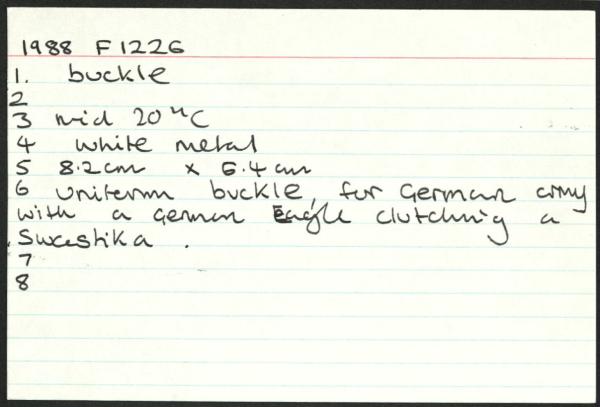 1988 F1226
1. buckle
2
3 mid 20thC
4 white metal
5 8.2cm x 6.4cm
6 Uniform buckle, for German army
with a German Eagle clutching a
Swastika .
7
8